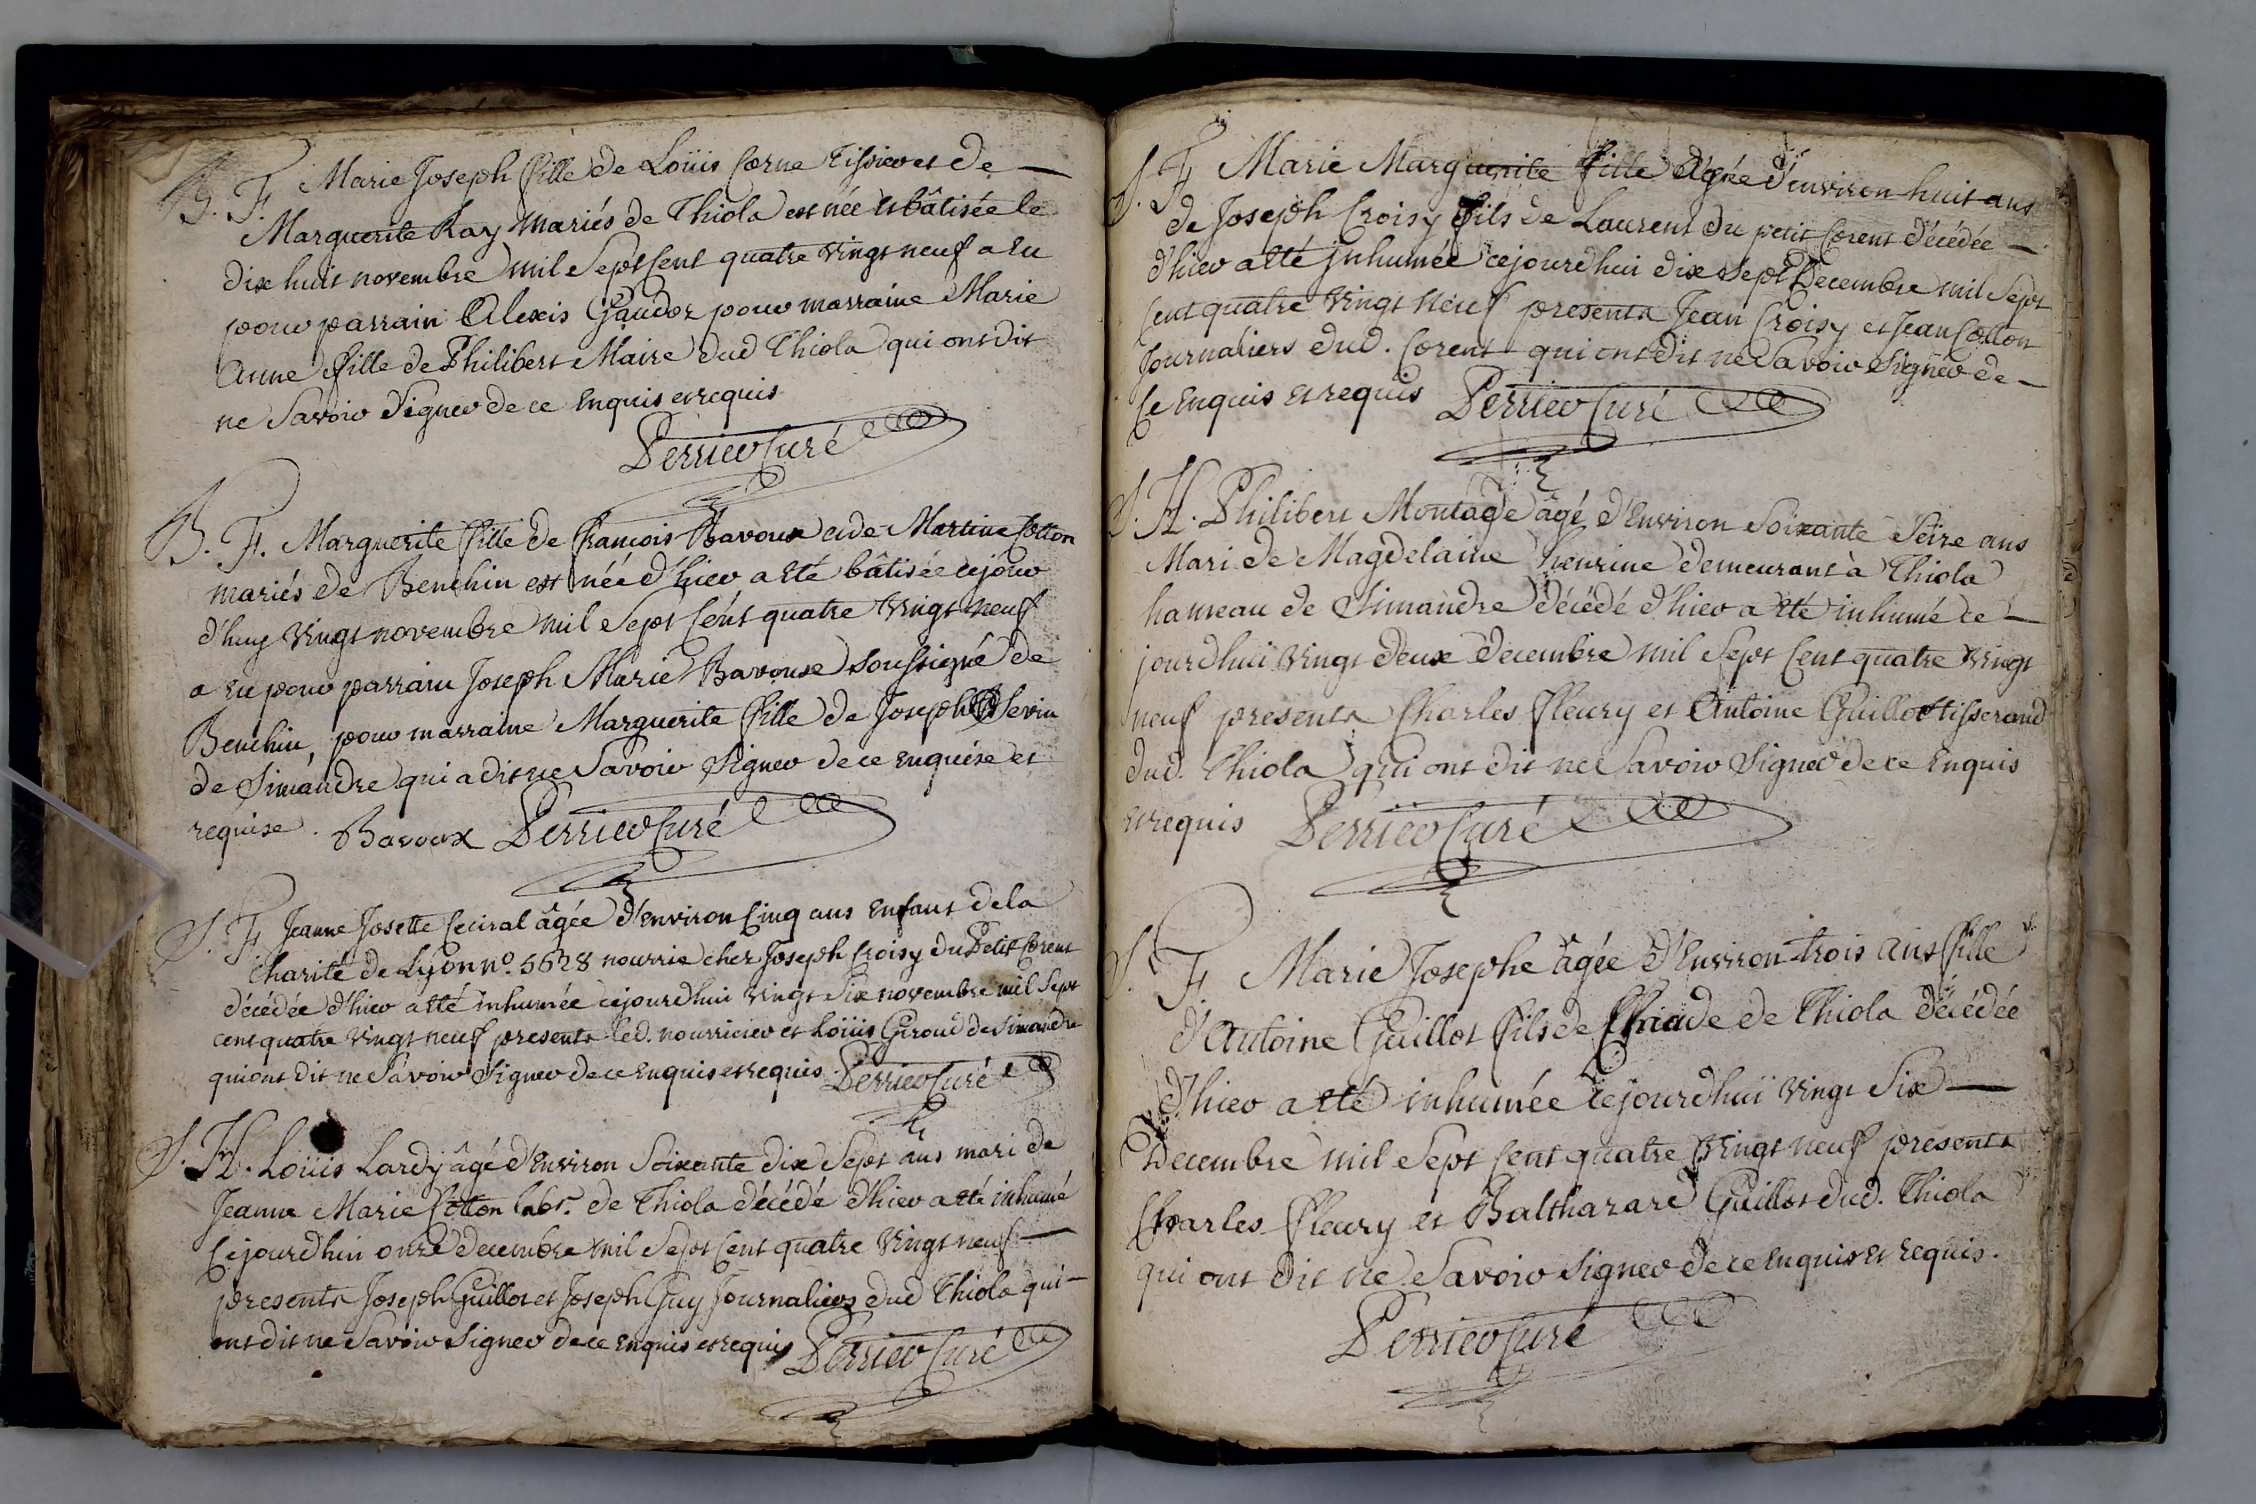 B. F. Marie Joseph fille de Loüis Corne Tissier et de —
Marguerite Ray mariés de Thiola est née et bâtisée le
dix huit novembre mil sept cent quatre vingt neuf a eu
pour parrain Alexis Gaudoz pour marraine Marie
Anne fille de Philibert Maire dud Thiola qui ont dit
ne savoir signer de ce enquis et requis
Perrier Curé
B. F. Marguerite fille de françois Bavoux et de Martine Cotton
mariés de Benchin est née d'hier a eté bâtisée cejour
d'huy vingt novembre mil sept cent quatre vingt neuf
a eu pour parrain Joseph Marie Bavoux soussigné de
Benchin, pour marraine Marguerite fille de Joseph
de Simandre qui a dit ne savoir signer de ce enquise et
requise. Bavoux Perrier Curé
S. F. Jeanne Josette âgée d'environ cinq ans enfant de la
Charité de Lyon n°. 5628 nourrie chez Joseph Croisy du Petit Corent
décédée d'hier a eté inhumée cejourdhui vingt six novembre mil sept
cent quatre vingt neuf presents led. nourricier et Loüis Giroud de Simandre
qui ont dit ne savoir signer de ce enquis et requis. Perrier Curé
S. H. Loüis Lardy âgé d'environ soixante dix sept ans mari de
Jeanne Marie Cotton labr. de Thiola décédé d'hier a eté inhumé
cejourdhui onze decembre mil sept cent quatre vingt neuf —
presents Joseph Guillot et Joseph Guy journaliers dud Thiola qui —
ont dit ne savoir signer de ce enquis et requis Perrier Curé
S. F. Marie Marguerite fille âgée d'environ huit ans
de Joseph Croisy fils de Laurent du petit Corent décédée —
d'hier a eté inhumée cejourdhui dix sept decembre mil sept
cent quatre vingt neuf presents Jean Croisy et Jean Cotton
journaliers dud. Corent qui ont dit ne savoir signer de —
ce enquis et requis Perrier Curé
S. H. Philibert Montade âgé d'environ soixante seize ans
Mari de Magdelaine henrine demeurant à Thiola
hameau de Simandre décédé d'hier a eté inhumé ce —
jourdhui vingt deux decembre mil sept cent quatre vingt
neuf presents Charles fleury et Antoine Guillot tisserand
dud. Thiola qui ont dit ne savoir signer de ce enquis
et requis Perrier Curé
S. F. Marie Josephe âgée d'environ trois ans fille
d'Antoine Guillot fils de Claude de Thiola décédée
d'hier a eté inhumée cejourdhui vingt six —
Decembre mil sept cent quatre vingt neuf presents
Charles fleury et Balthazard Guillot dud. Thiola
qui ont dit ne savoir signer de ce enquis et requis.
Perrier Curé